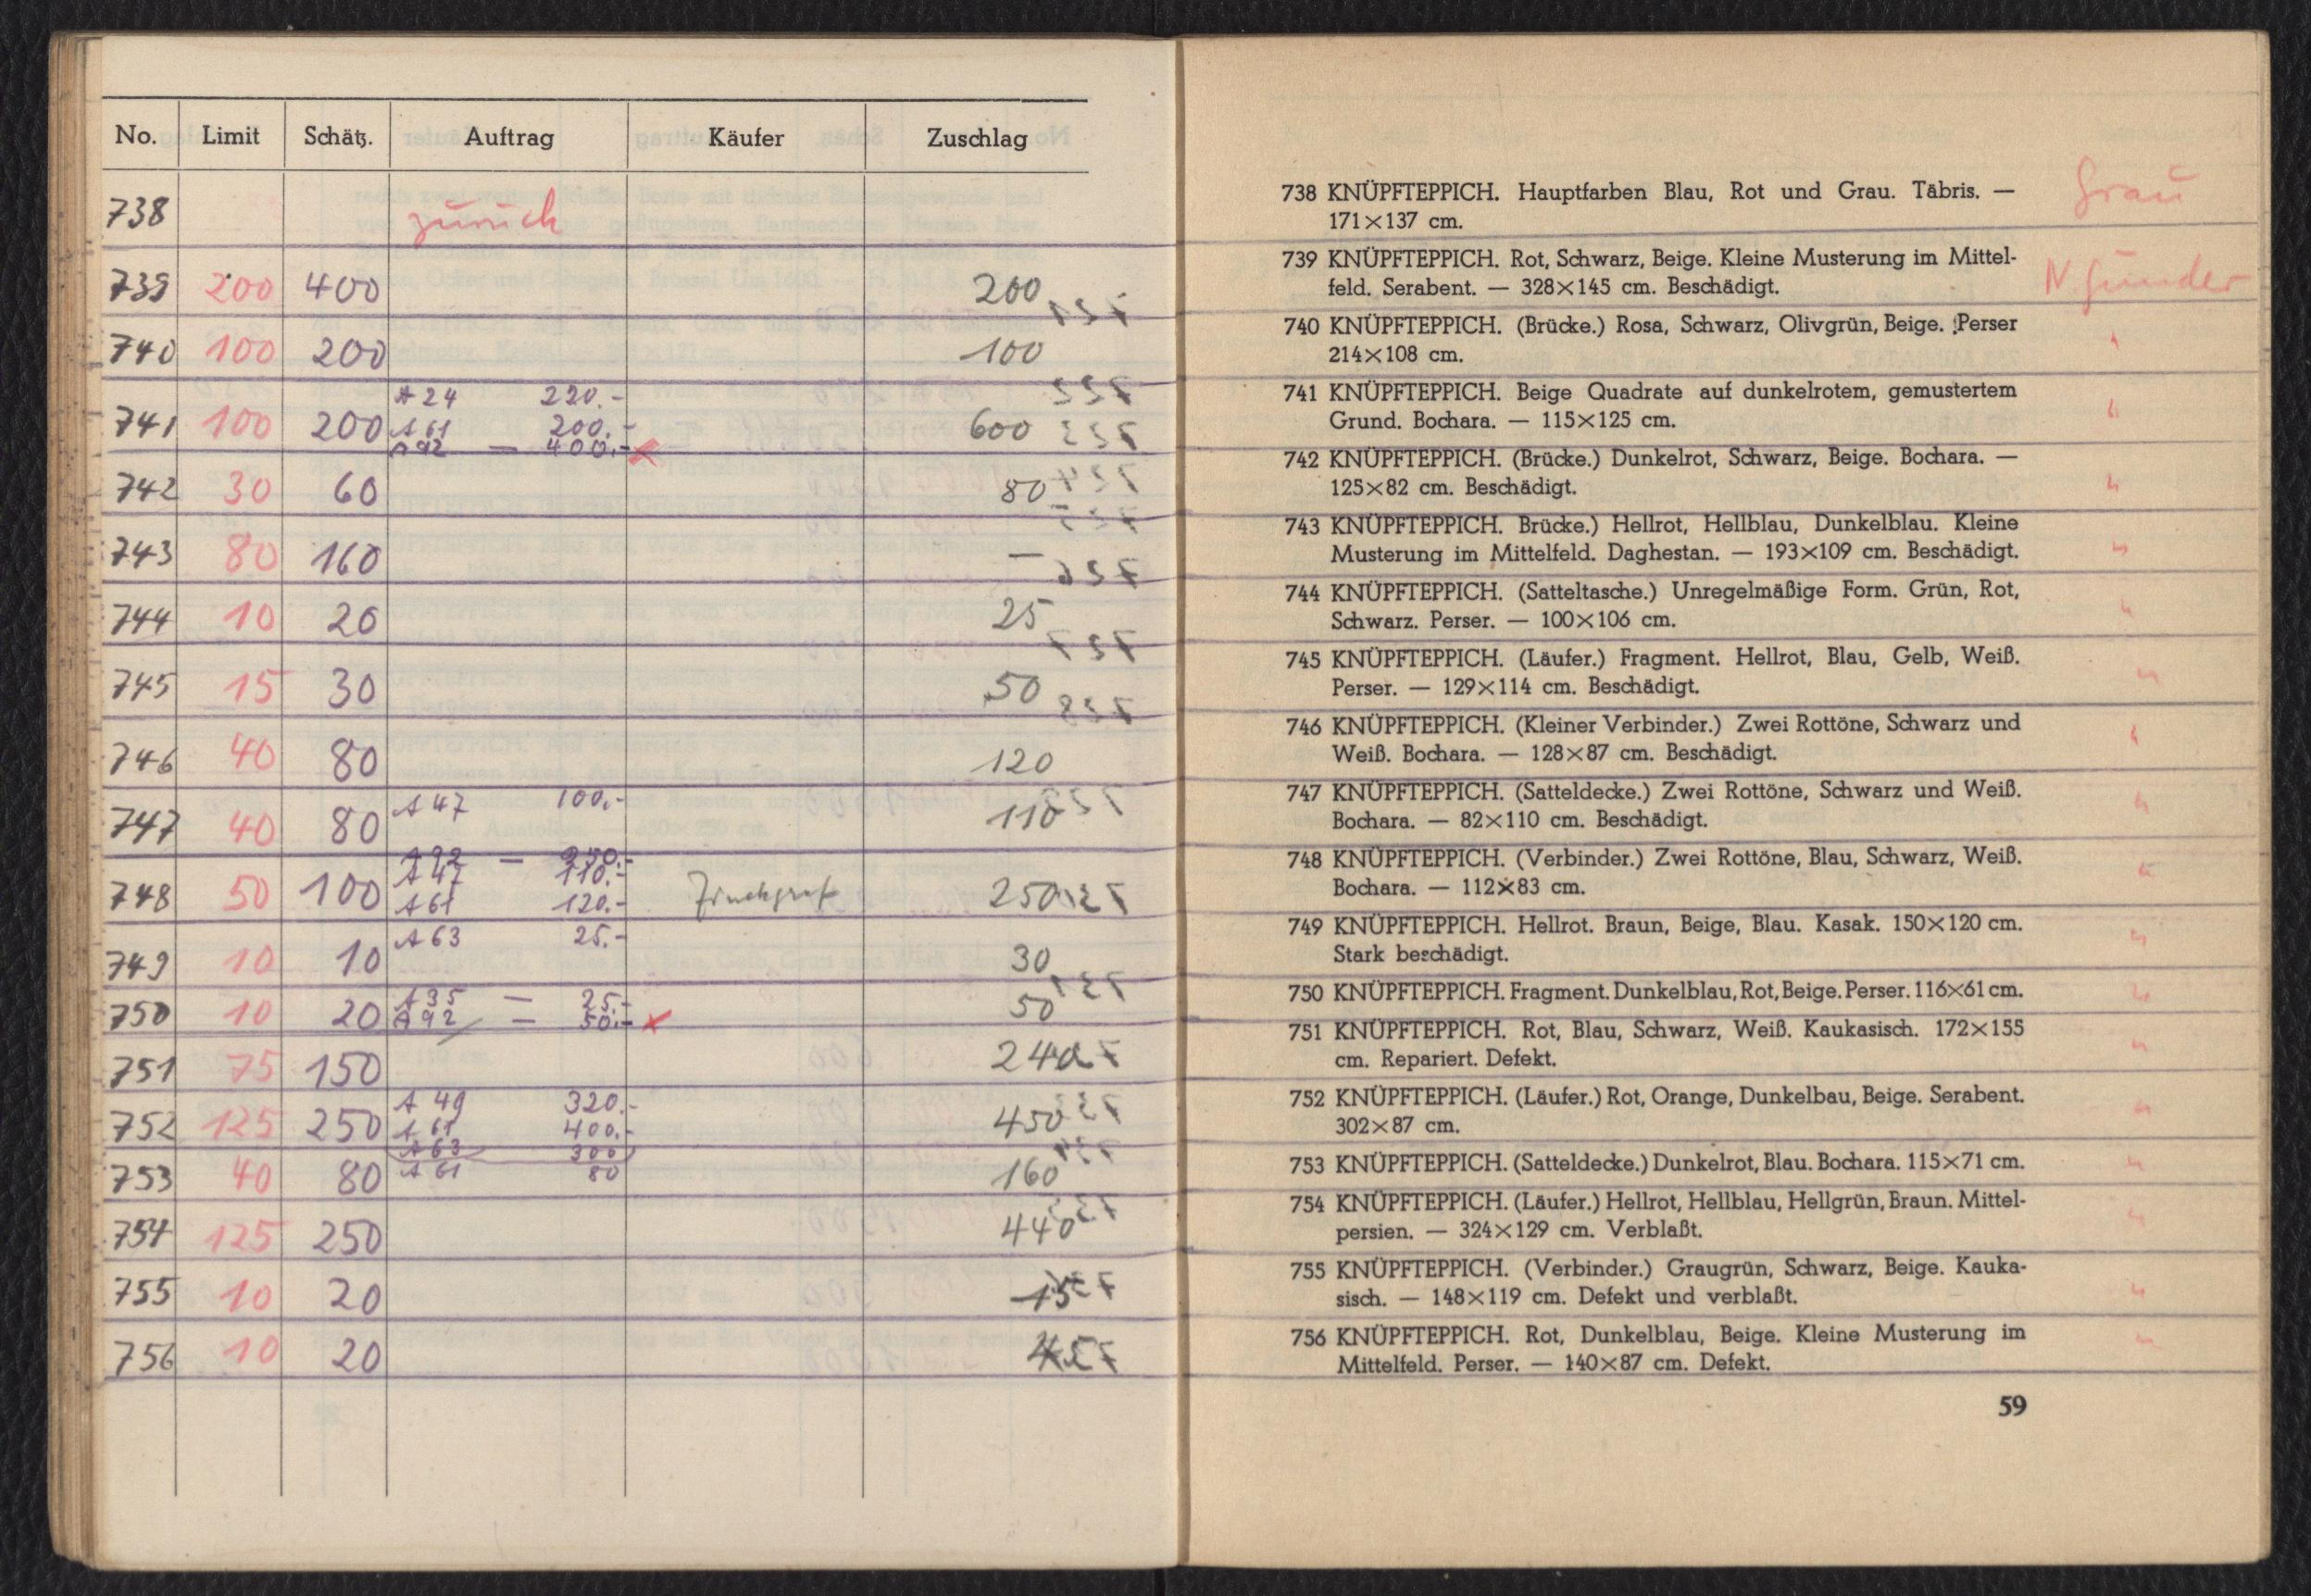 No. Limit Schätz. Auftrag Käufer Zuschlag
738 zurück
739 200 400 200
740 100 200 100
A 24 220.-
741 100 200 A 61 200.- 600
A 92 — 400.- x
742 30 60 80
743 80 160 —
744 10 20 25
745 15 30 50
746 40 80 120
747 40 80 A 47 100.- 110
A 92 —
A 47 110.-
748 50 100 A 61 120.- 250
749 10 10 A 63 25.- 30
A 35 — 25.-
750 10 20 A 92 — 50.- x 50
751 75 150 240
A 49 320.-
752 125 250 A 61 400.- 450
A 63 300
753 40 80 A 61 80 160
754 125 250 440
755 10 20 15
756 10 20
738 KNÜPFTEPPICH. Hauptfarben Blau, Rot und Grau. Täbris. — Grau
171×137 cm.
739 KNÜPFTEPPICH. Rot, Schwarz, Beige. Kleine Musterung im Mittel-
feld. Serabent. — 328×145 cm. Beschädigt. N.
740 KNÜPFTEPPICH. (Brücke.) Rosa, Schwarz, Olivgrün, Beige. Perser "
214×108 cm.
741 KNÜPFTEPPICH. Beige Quadrate auf dunkelrotem, gemustertem "
Grund. Bochara. — 115×125 cm.
742 KNÜPFTEPPICH. (Brücke.) Dunkelrot, Schwarz, Beige. Bochara. — "
125×82 cm. Beschädigt.
743 KNÜPFTEPPICH. Brücke.) Hellrot, Hellblau, Dunkelblau. Kleine "
Musterung im Mittelfeld. Daghestan. — 193×109 cm. Beschädigt.
744 KNÜPFTEPPICH. (Satteltasche.) Unregelmäßige Form. Grün, Rot, "
Schwarz. Perser. — 100×106 cm.
745 KNÜPFTEPPICH. (Läufer.) Fragment. Hellrot, Blau, Gelb, Weiß. "
Perser. — 129×114 cm. Beschädigt.
746 KNÜPFTEPPICH. (Kleiner Verbinder.) Zwei Rottöne, Schwarz und "
Weiß. Bochara. — 128×87 cm. Beschädigt.
747 KNÜPFTEPPICH. (Satteldecke.) Zwei Rottöne, Schwarz und Weiß. "
Bochara. — 82×110 cm. Beschädigt.
748 KNÜPFTEPPICH. (Verbinder.) Zwei Rottöne, Blau, Schwarz, Weiß. "
Bochara. — 112×83 cm.
749 KNÜPFTEPPICH. Hellrot. Braun, Beige, Blau. Kasak. 150×120 cm. "
Stark beschädigt.
750 KNÜPFTEPPICH. Fragment. Dunkelblau, Rot, Beige. Perser. 116×61 cm. "
751 KNÜPFTEPPICH. Rot, Blau, Schwarz, Weiß. Kaukasisch. 172×155 "
cm. Repariert. Defekt.
752 KNÜPFTEPPICH. (Läufer.) Rot, Orange, Dunkelbau, Beige. Serabent. "
302×87 cm.
753 KNÜPFTEPPICH. (Satteldecke.) Dunkelrot, Blau. Bochara. 115×71 cm. "
754 KNÜPFTEPPICH. (Läufer.) Hellrot, Hellblau, Hellgrün, Braun. Mittel- "
persien. — 324×129 cm. Verblaßt.
755 KNÜPFTEPPICH. (Verbinder.) Graugrün, Schwarz, Beige. Kauka- "
sisch. — 148×119 cm. Defekt und verblaßt.
756 KNÜPFTEPPICH. Rot, Dunkelblau, Beige. Kleine Musterung im "
Mittelfeld. Perser. — 140×87 cm. Defekt.
59